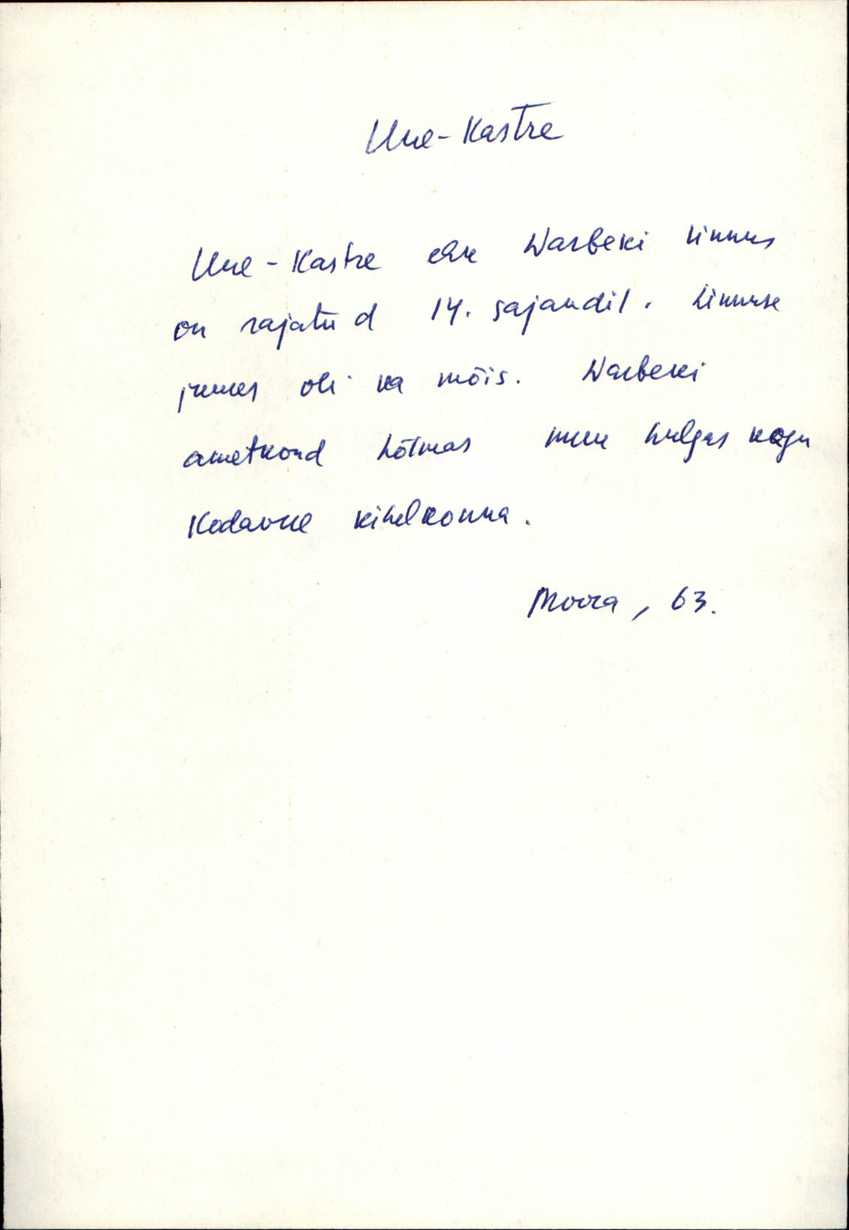 Uue-Kastre
Uue-Kastre ehk Warbeki linnus
on rajatud 14. sajandil. Linnuse
juures oli ka mõis. Warbeki
ametkond hõlmas muu hulgas kogu
Kodavere kihelkonna.
Moora, 63.